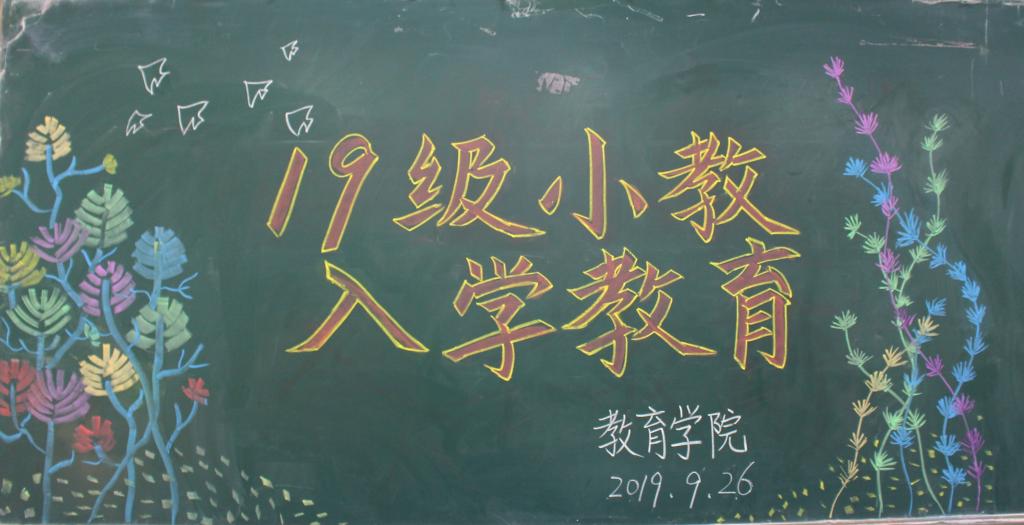 19级小教
入学教育
教育学院
2019.9.26